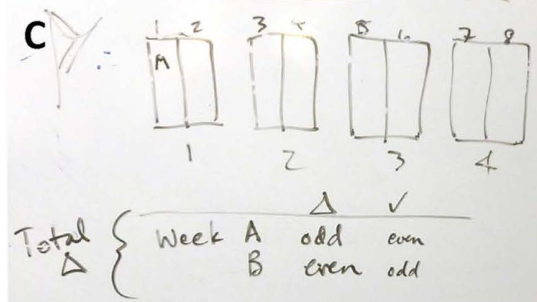 C
1 2 3 4 5 6 7 8
A
1 2 3 4
Δ ✓
Total Week A odd even
Δ B even odd